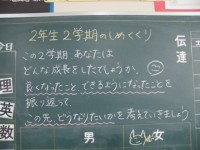 2年生2学期のしめくくり
この2学期 あなたは
どんな成長をしたでしょうか。
良くなったこと、できるようになったことを
振り返って
この先、どうなりたいかを考えていきましょう
男
女
伝達
理
英
数